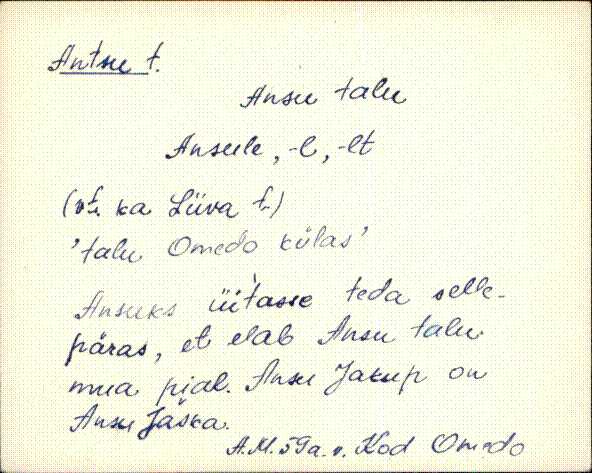 Antsu t.
Ansu talu
Ansule, -l, -lt
(vt. ka Liiva t.)
'talu Omedo külas'
Ansuks üitasse teda selle-
päras, et elab Ansu talu
mua pial. Ansu Jakup on
Ansu Jaška.
A.M. 59a. v. Kod Omedo